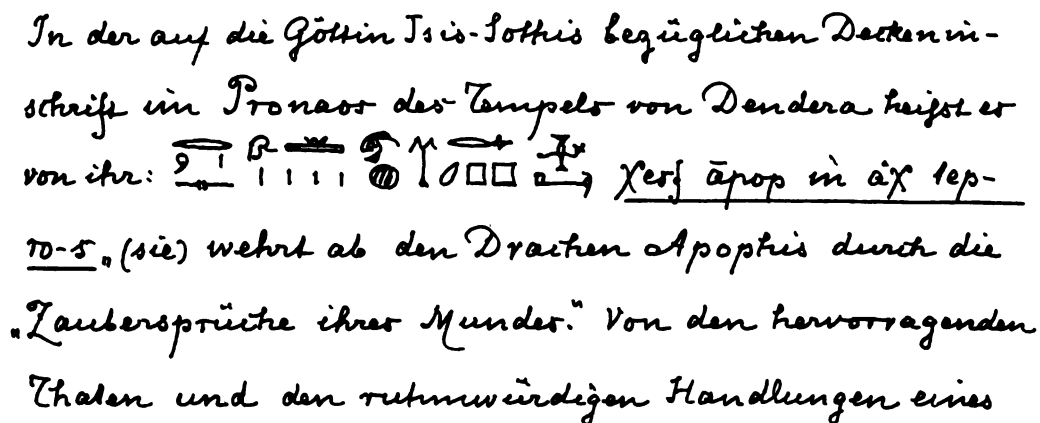 In der auf die Göttin Isis-Sothis bezüglichen Deckenin-
schrift im Pronaos des Tempels von Dendera heißt es
von ihr: χesf āpop in âχ tep-
ro-s „(sie) wehrt ab den Drachen Apophis durch die
„Zaubersprüche ihres Mundes.“ Von den hervorragenden
Thaten und den ruhmwürdigen Handlungen eines